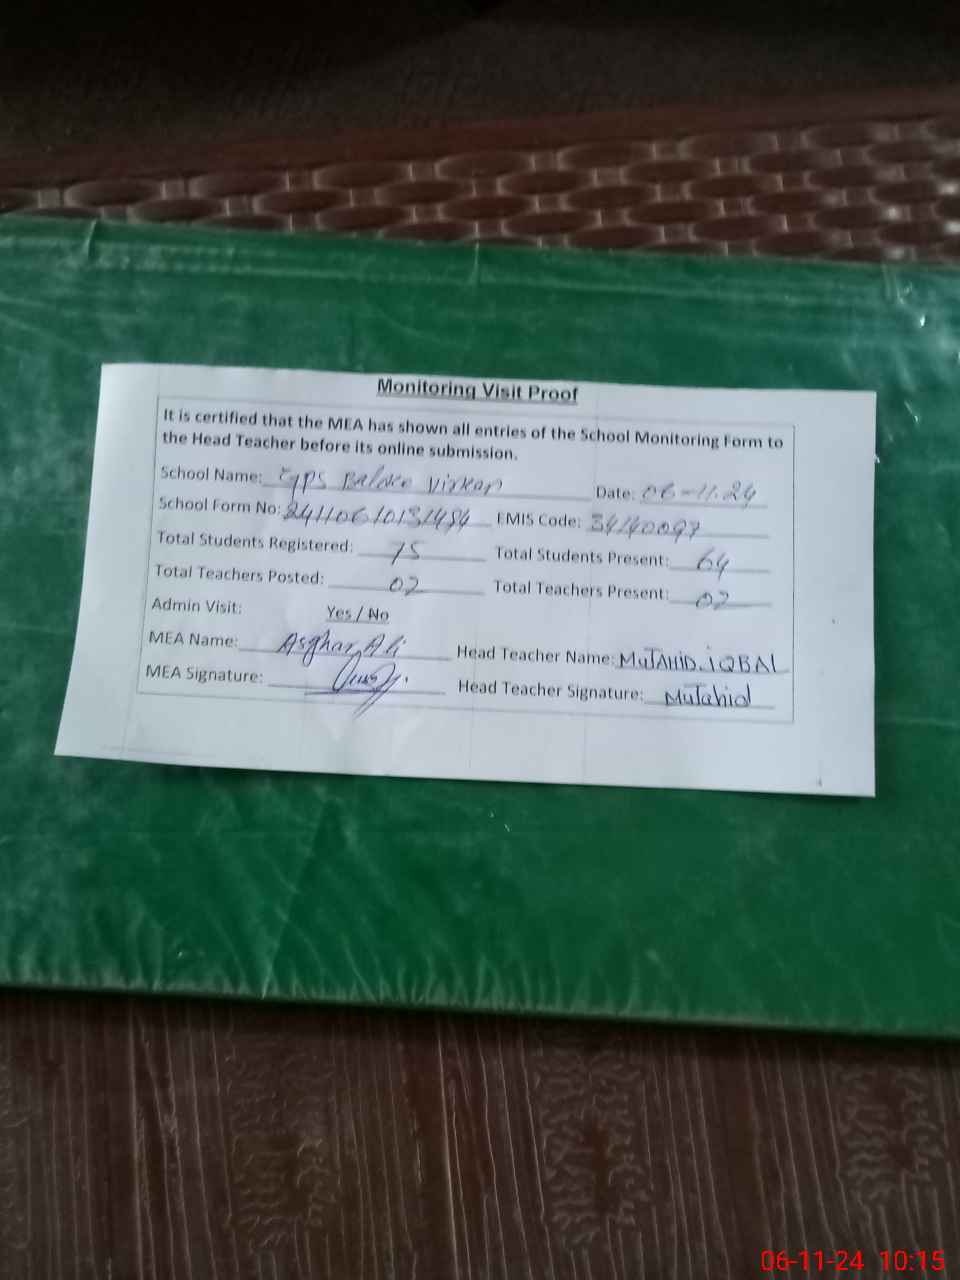 Monitoring Visit Proof
It is certified that the MEA has shown all entries of the School Monitoring Form to
the Head Teacher before its online submission.
School Name: GPS Virkan Date: 06-11.24
School Form No: EMIS Code: 34140097
Total Students Registered: 75 Total Students Present: 64
Total Teachers Posted: 02 Total Teachers Present: 02
Admin Visit: Yes / No
MEA Name: Asghar Ali Head Teacher Name: MuTAHID.iQBAL
MEA Signature: Head Teacher Signature: MuTahid
06-11-24 10:15